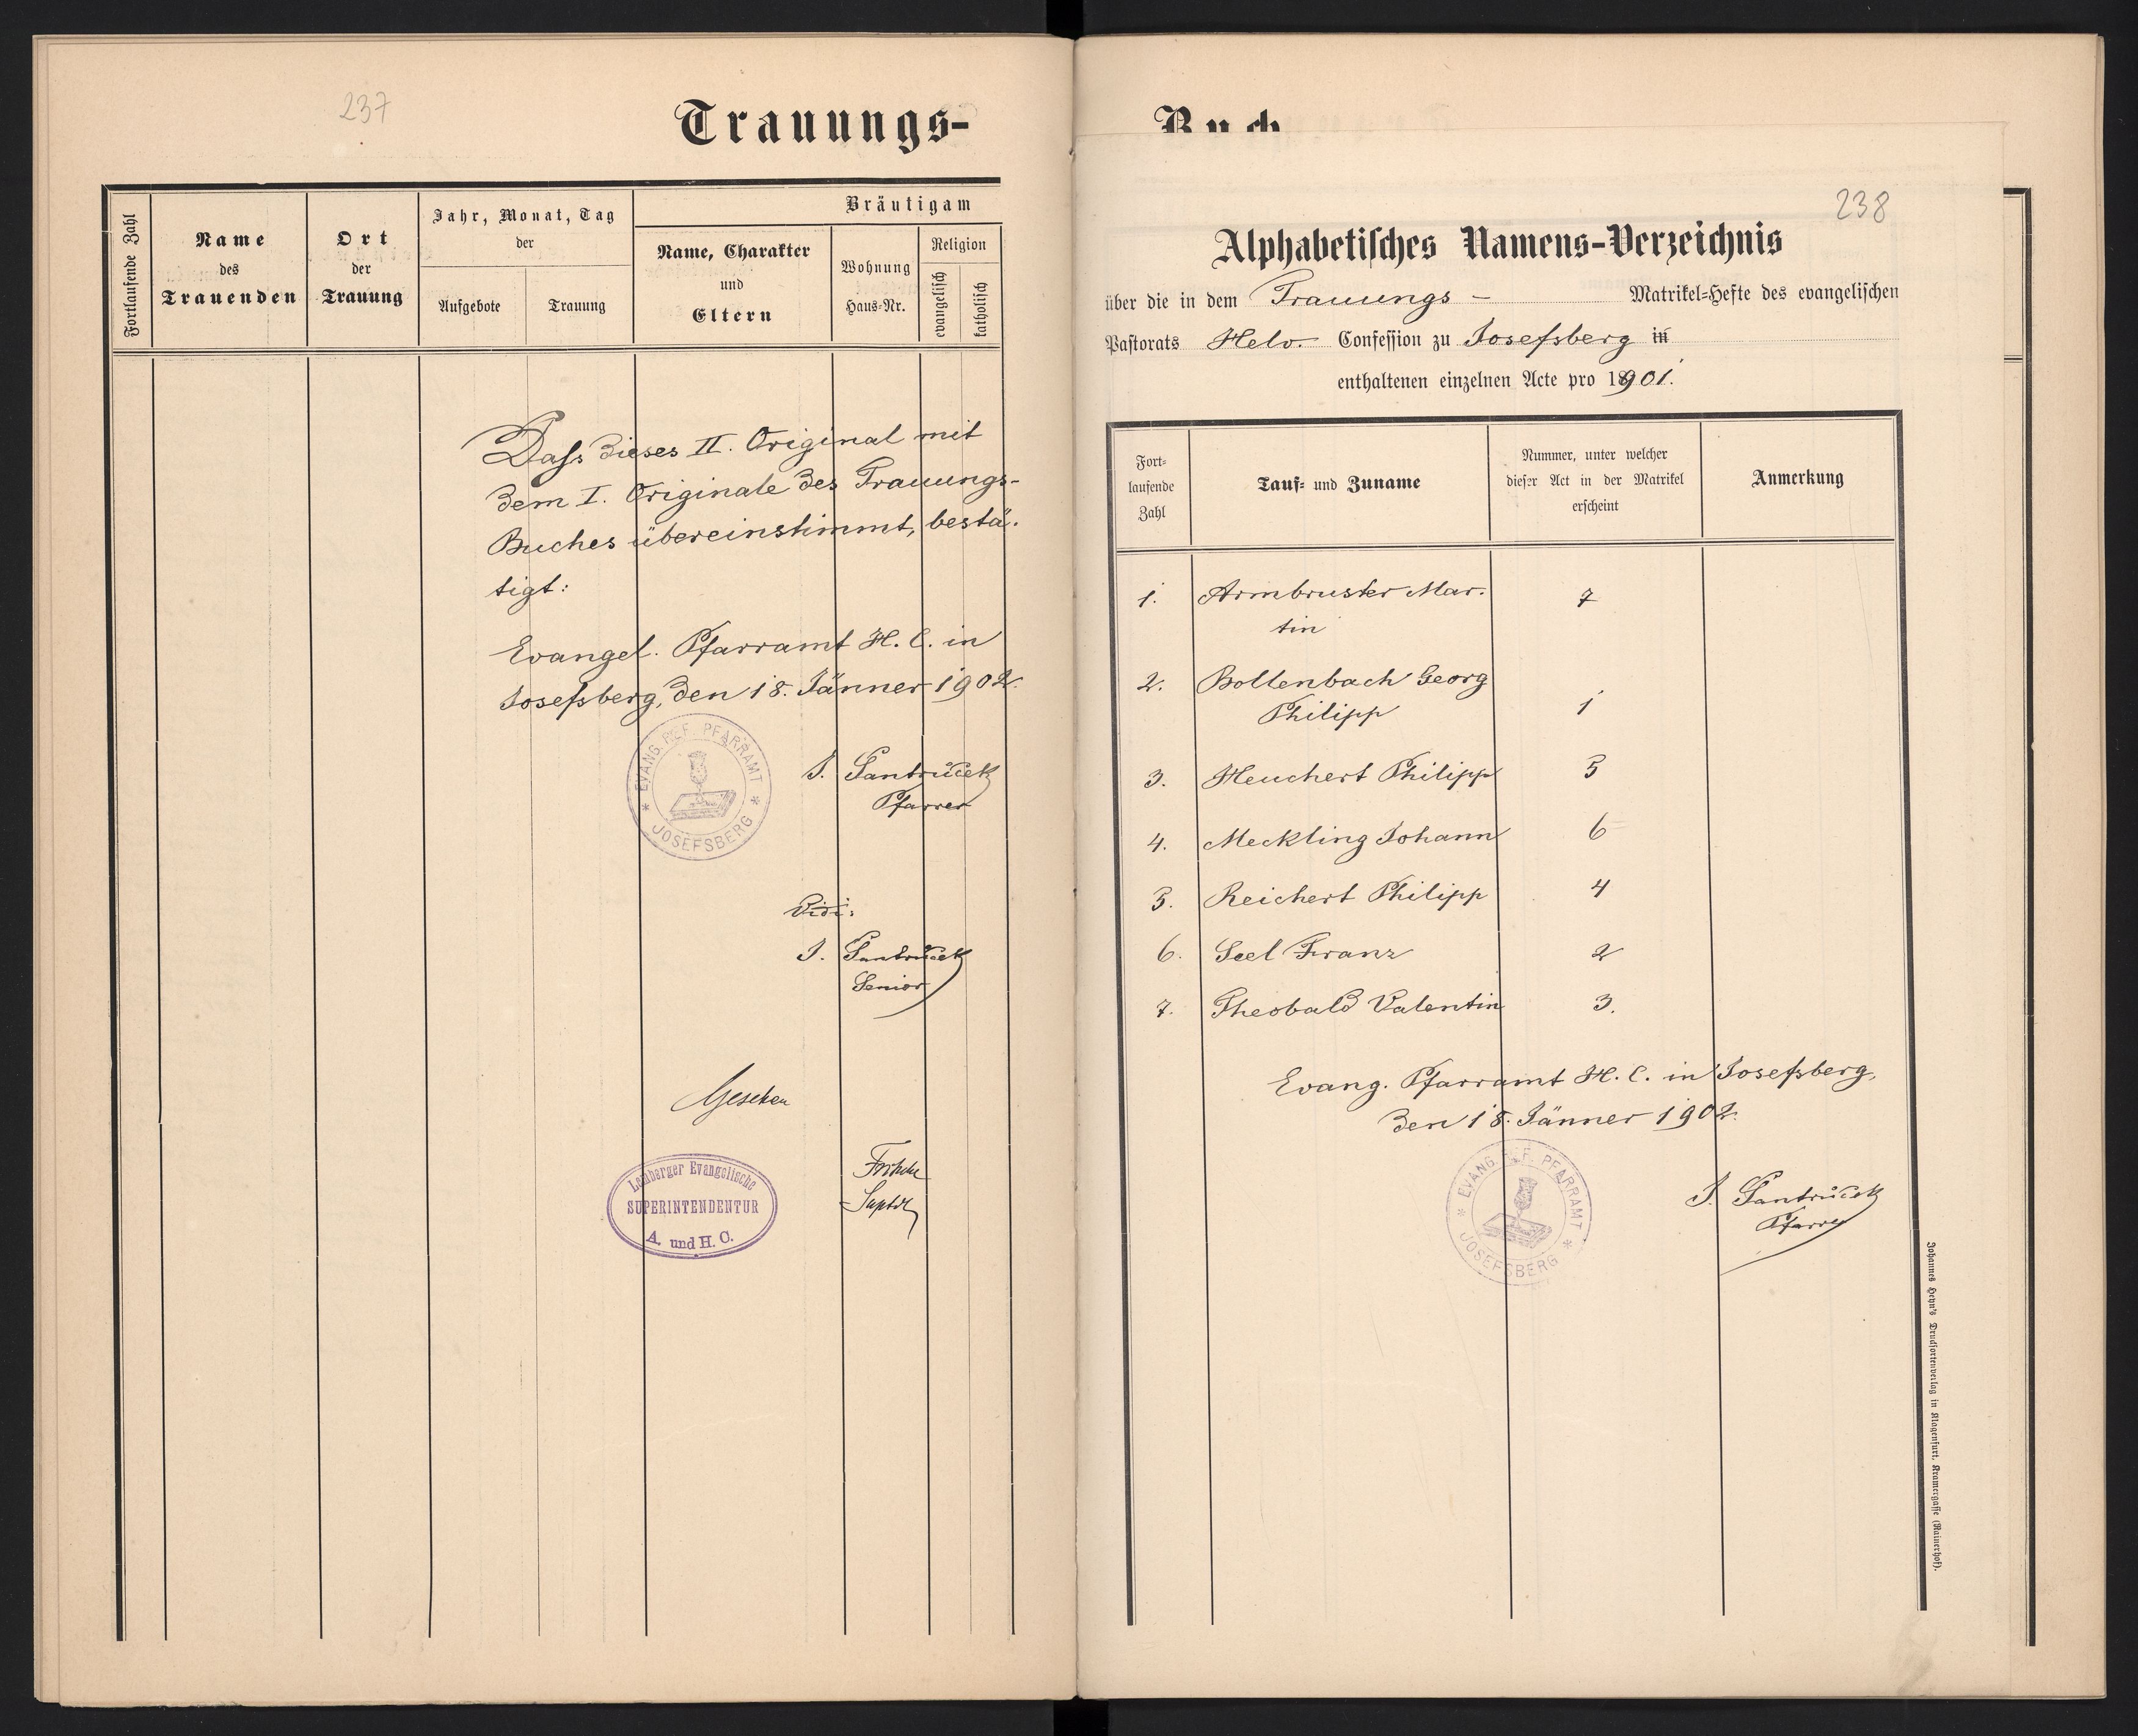 237
Trauungs-
Fortlaufende Zahl
Name
des
Trauenden
Ort
der
Trauung
Jahr, Monat, Tag
der
Aufgebote
Trauung
Bräutigam
Name, Charakter
und
Eltern
Wohnung
Haus-Nr.
Religion
evangelisch
katholisch
Dass dieses II. Original mit
dem I. Originale des Trauungs-
Buches übereinstimmt, bestä-
tigt:
Evangel. Pfarramt H. C. in
Josefsberg, den 18. Jänner 1902.
EVANG. REF. PFARRAMT
* JOSEFSBERG *
J. Šantrůček
Pfarrer
Vidi:
J. Šantrůček
Senior
Gesehen
Lemberger Evangelische
SUPERINTENDENTUR
A. und H. C.
Suptdt
Buch
238
Alphabetisches Namens-Verzeichnis
über die in dem Trauungs - Matrikel-Hefte des evangelischen
Pastorats Helv. Confession zu Josefsberg in
enthaltenen einzelnen Acte pro 1901.
Fort-
laufende
Zahl
Tauf- und Zuname
Nummer, unter welcher
dieser Act in der Matrikel
erscheint
Anmerkung
1. Armbruster Mar- 7
tin
2. Bollenbach Georg
Philipp 1
3. Heuchert Philipp 5
4. Meckling Johann 6
5. Reichert Philipp 4
6. Seel Franz 2
7. Theobald Valentin 3.
Evang. Pfarramt H. C. in Josefsberg,
den 18. Jänner 1902.
EVANG. REF. PFARRAMT
* JOSEFSBERG *
J. Šantrůček
Pfarrer
Johannes Heyn's Drucksortenverlag in Klagenfurt, Kramergasse (Rainerhof).